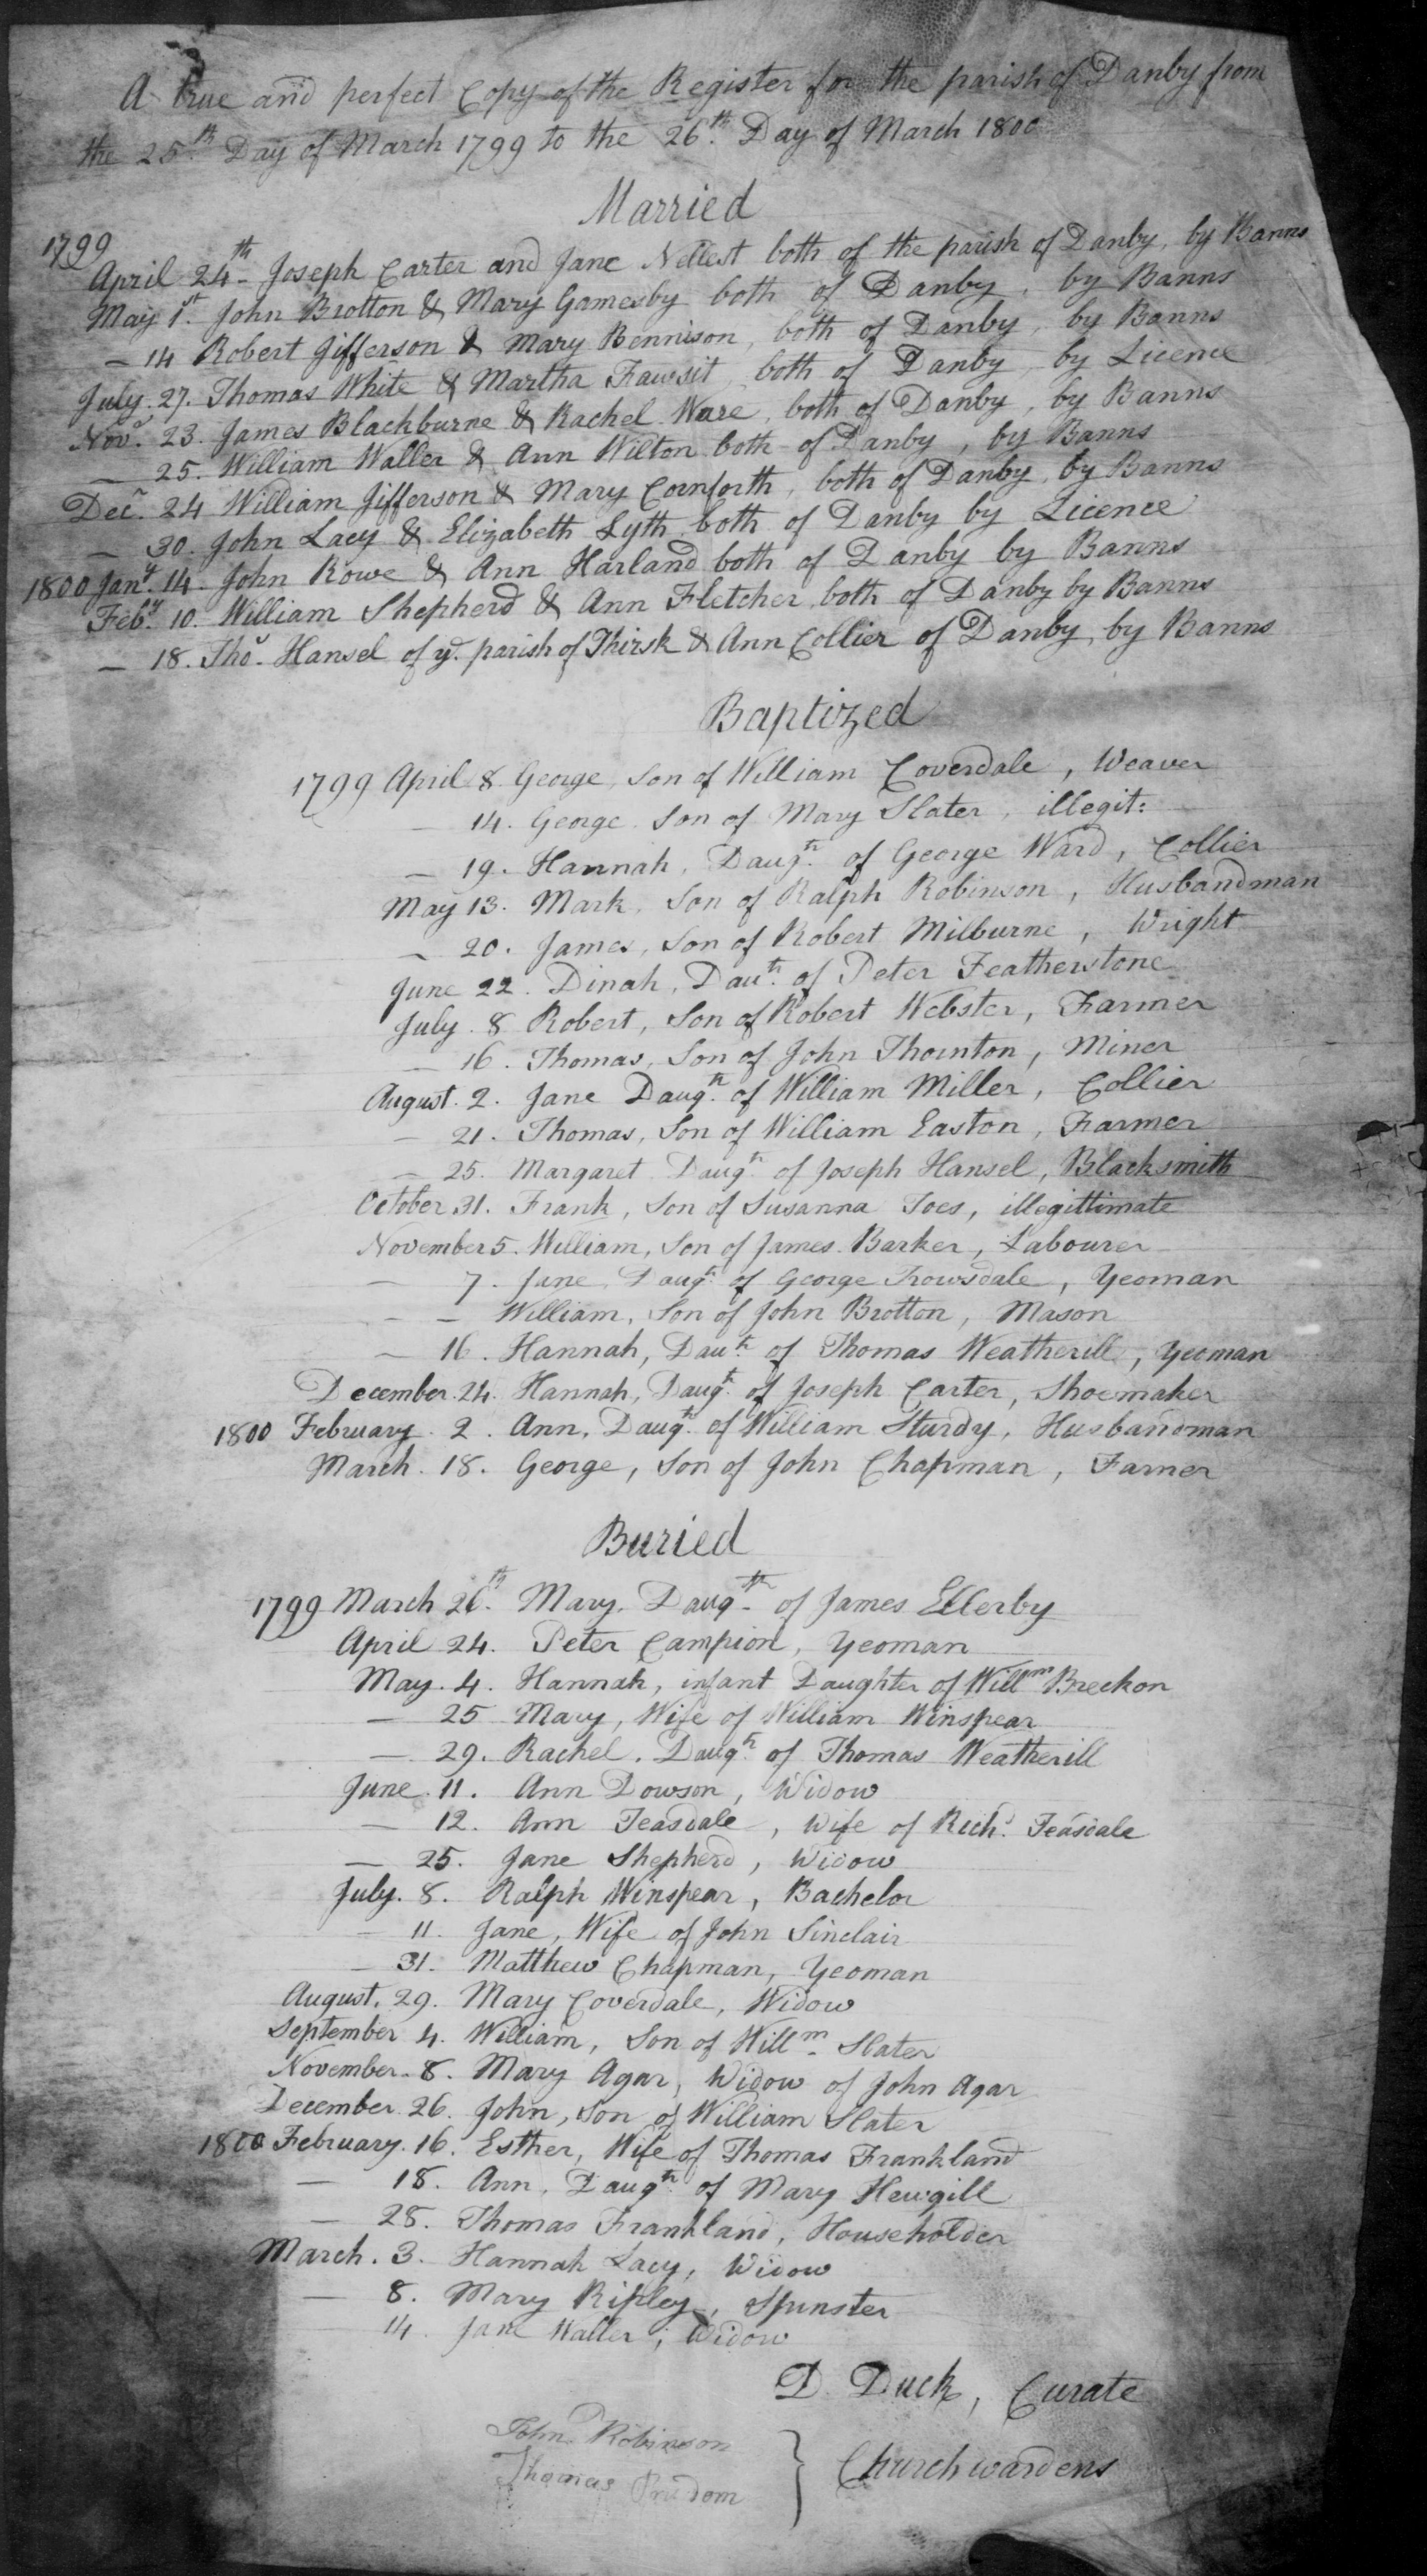 A true and perfect Copy of the Register for the parish of Danby from
the 25.th Day of March 1799 to the 26.th Day of March 1800
Married
1799
April 24th - Joseph Carter and Jane Nellest both of the parish of Danby, by Banns
May 1st. John Brotton & Mary Gamesby both of Danby, by Banns
— 14 Robert Jifferson & Mary Bennison, both of Danby, by Banns
July. 27. Thomas White & Martha Fawsit, both of Danby, by Licence
Novr. 23. James Blackburne & Rachel Ware, both of Danby, by Banns
— 25. William Waller & Ann Wilton both of Danby, by Banns
Decr. 24 William Jifferson & Mary Cornforth, both of Danby, by Banns
— 30. John Lacy & Elizabeth Lyth both of Danby by Licence
1800 Jany. 14. John Rowe & Ann Harland both of Danby by Banns
Feby. 10. William Shepherd & Ann Fletcher, both of Danby by Banns
— 18. Thos. Hansel of ye. parish of Thirsk & Ann Collier of Danby, by Banns
Baptized
1799 April 8. George, Son of William Coverdale, Weaver
— 14. George. Son of Mary Slater, illegit:
— 19. Hannah, Daugth. of George Ward, Collier
May 13. Mark, Son of Ralph Robinson, Husbandman
— 20. James, Son of Robert Milburne, Wright
June 22. Dinah, Dauth. of Peter Featherstone
July. 8 Robert, Son of Robert Webster, Farmer
— 16. Thomas, Son of John Thornton, Miner
August. 2. Jane Daugth. of William Miller, Collier
— 21. Thomas, Son of William Easton, Farmer
— 25. Margaret Daugth. of Joseph Hansel, Blacksmith
October 31. Frank, Son of Susanna Toes, illegittimate
November 5. William, Son of James Barker, Labourer
— 7. Jane, Daugth. of George Trowsdale, Yeoman
— — William, Son of John Brotton, Mason
— 16. Hannah, Dauth. of Thomas Weatherill, Yeoman
December. 24. Hannah, Daugth. of Joseph Carter, Shoemaker
1800 February. 2. Ann, Daugth. of William Sturdy, Husbandman
March. 18. George, Son of John Chapman, Farmer
Buried
1799 March 26th. Mary, Daugth. of James Ellerby
April 24. Peter Campion, Yeoman
May. 4. Hannah, infant Daughter of Willm Breckon
— 25 Mary, Wife of William Winspear
— 29. Rachel. Daugth. of Thomas Weatherill
June. 11. Ann Dowson, Widow
— 12. Ann Teasdale, Wife of Richd. Teasdale
— 25. Jane Shepherd, Widow
July. 8. Ralph Winspear, Bachelor
— 11. Jane, Wife of John Sinclair
— 31. Matthew Chapman, Yeoman
August. 29. Mary Coverdale, Widow
September 4. William, Son of Willm. Slater
November. 8. Mary Agar, Widow of John Agar
December 26. John, Son of William Slater
1800 February. 16. Esther, Wife of Thomas Frankland
— 18. Ann, Daugth. of Mary Hewgill
— 28. Thomas Frankland, Householder
March. 3. Hannah Lacy, Widow
— 8. Mary Ripley, Spinster
14. Jane Waller, Widow
D. Duck, Curate
John Robinson
Thomas Prudom
Churchwardens